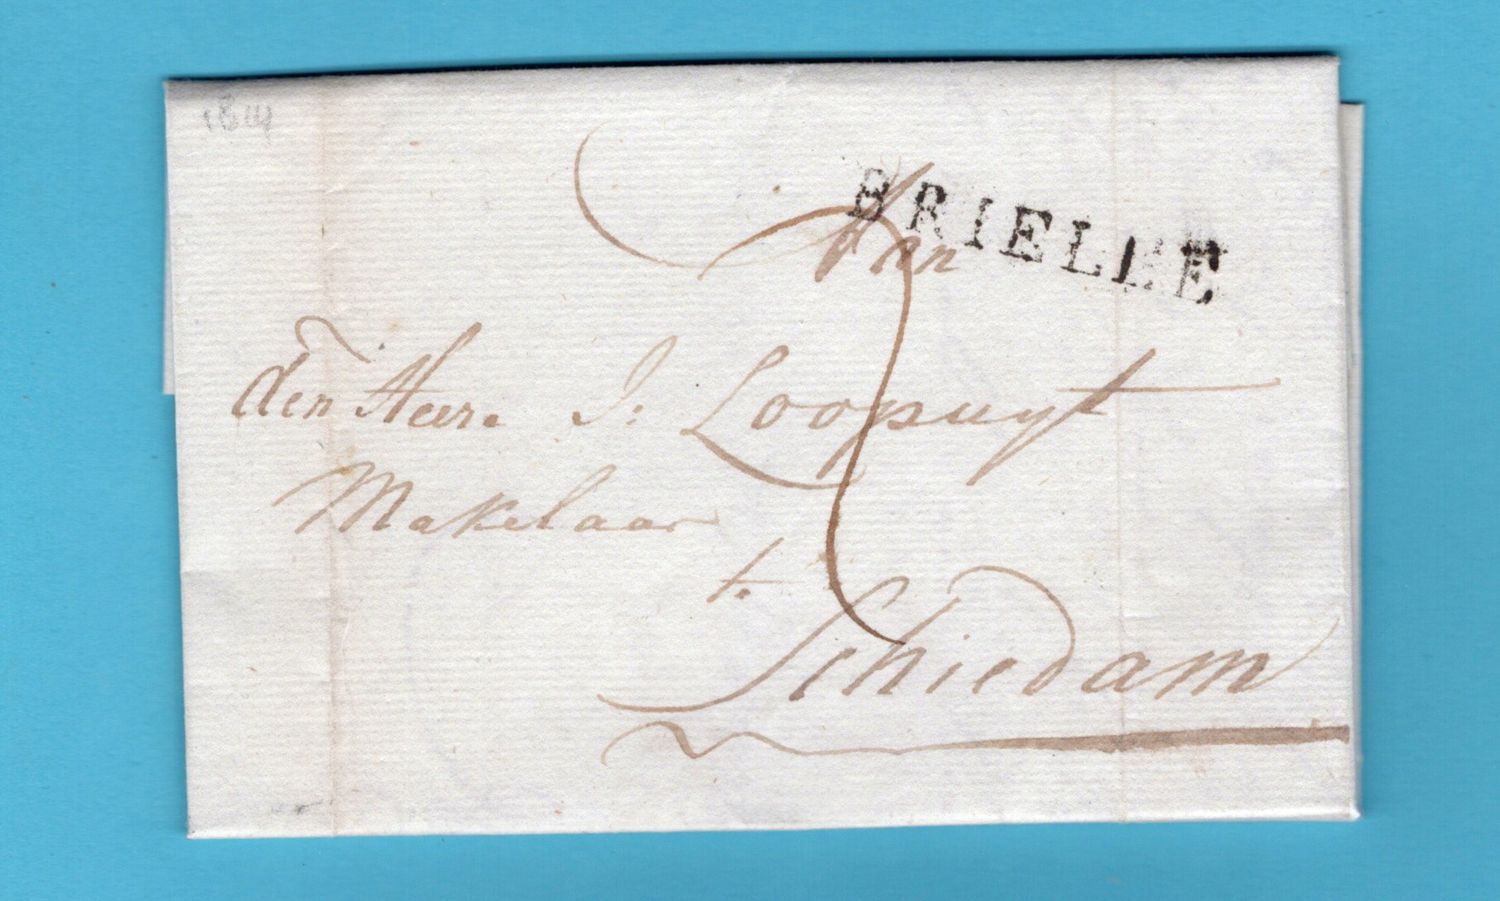 BRIELLE
Aan
den Heere J: Loopuyt
Makelaar
te
Schiedam